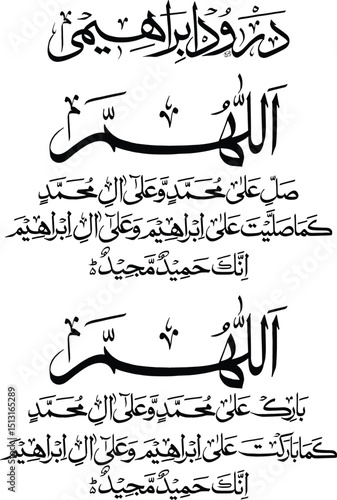 دَرُودِ اِبْرَاهِيمِی
اَللّٰهُمَّ
صَلِّ عَلٰى مُحَمَّدٍ وَّعَلٰٓى اٰلِ مُحَمَّدٍ
كَمَا صَلَّيْتَ عَلٰٓى اِبْرَاهِيْمَ وَعَلٰٓى اٰلِ اِبْرَاهِيْمَ
اِنَّكَ حَمِيْدٌ مَّجِيْدٌ
اَللّٰهُمَّ
بَارِكْ عَلٰى مُحَمَّدٍ وَّعَلٰٓى اٰلِ مُحَمَّدٍ
كَمَا بَارَكْتَ عَلٰٓى اِبْرَاهِيْمَ وَعَلٰٓى اٰلِ اِبْرَاهِيْمَ
اِنَّكَ حَمِيْدٌ مَّجِيْدٌ
Adobe Stock | #1513165289